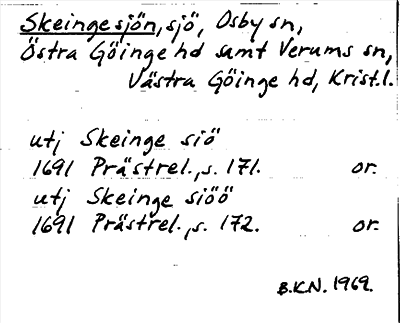 Skeingesjön, sjö, Osby sn,
Östra Göinge hd samt Verums sn,
Västra Göinge hd, Krist.l.
utj Skeinge siö
1691 Prästrel., s. 171. or.
utj Skeinge siöö
1691 Prästrel., s. 172. or.
B.K.N. 1969.